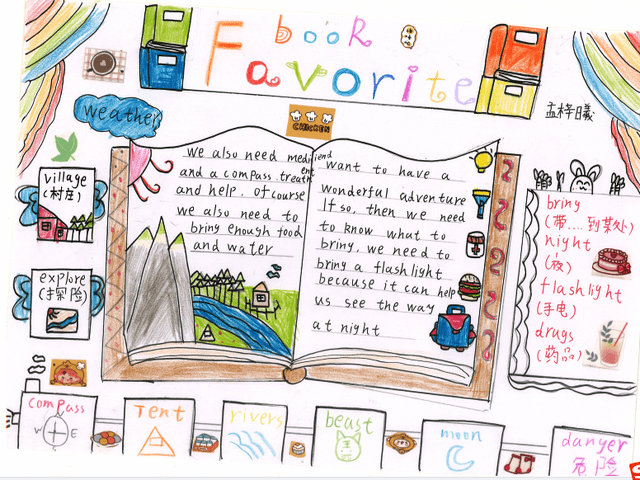 book
Favorite
孟梓曦
weather
CHICKEN
village
(村庄)
explore
(探险)
we also need medi
and a compass. treat
and help, Of course
we also need to
bring enough food
and water
want to have a
wonderful adventure
If so, then we need
to know what to
bring, we need to
bring a flashlight
because it can help
us see the way
at night
bring
(带....到某处)
night
(夜)
flashlight
(手电)
drugs
(药品)
compass
W E
Tent
rivers
beast
王
moon
danger
危险